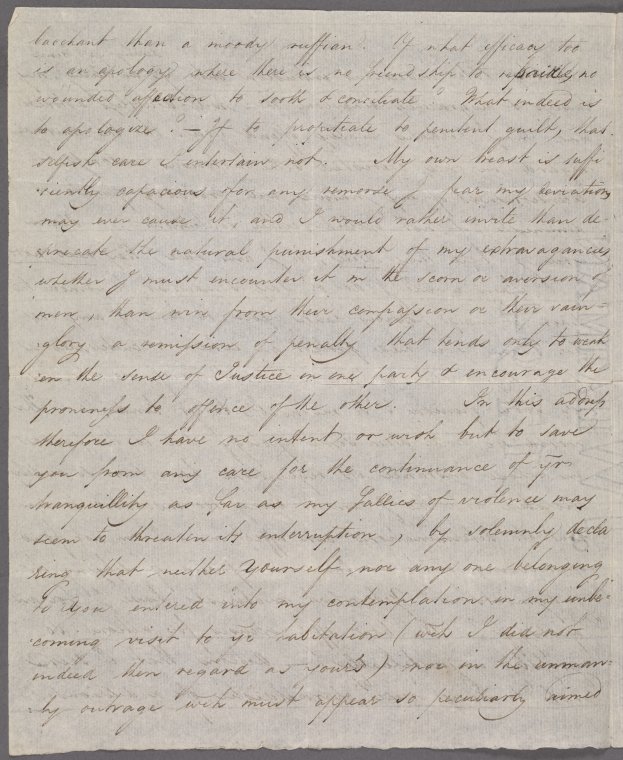 bacchant than a moody ruffian. Of what efficacy too
is an apology where there is no friendship to no
wounded affection to sooth & conciliate? What indeed is
to apologize? — If to propitiate to penitent guilt, that
selfish care I entertain not. My own breast is suffi
ciently capacious for any remorse I fear my deviations
may ever cause it, and I would rather invite than de-
precate the natural punishment of my extravagancies
whether I must encounter it in the scorn or aversion of
men, than win from their compassion or their vain-
glory a remission of penalty that tends only to weak
en the sense of Justice in one party & encourage the
proneness to offence of the other. In this address
therefore I have no intent or wish but to save
you from any care for the continuance of yr
tranquillity as far as my Sallies of violence may
seem to threaten its interruption, by solemnly decla
ring that neither Yourself nor any one belonging
to you entered into my contemplation in my unbe-
coming visit to yr habitation (wch I did not
indeed then regard as yours) nor in the unman-
ly outrage wch must appear so peculiarly aimed